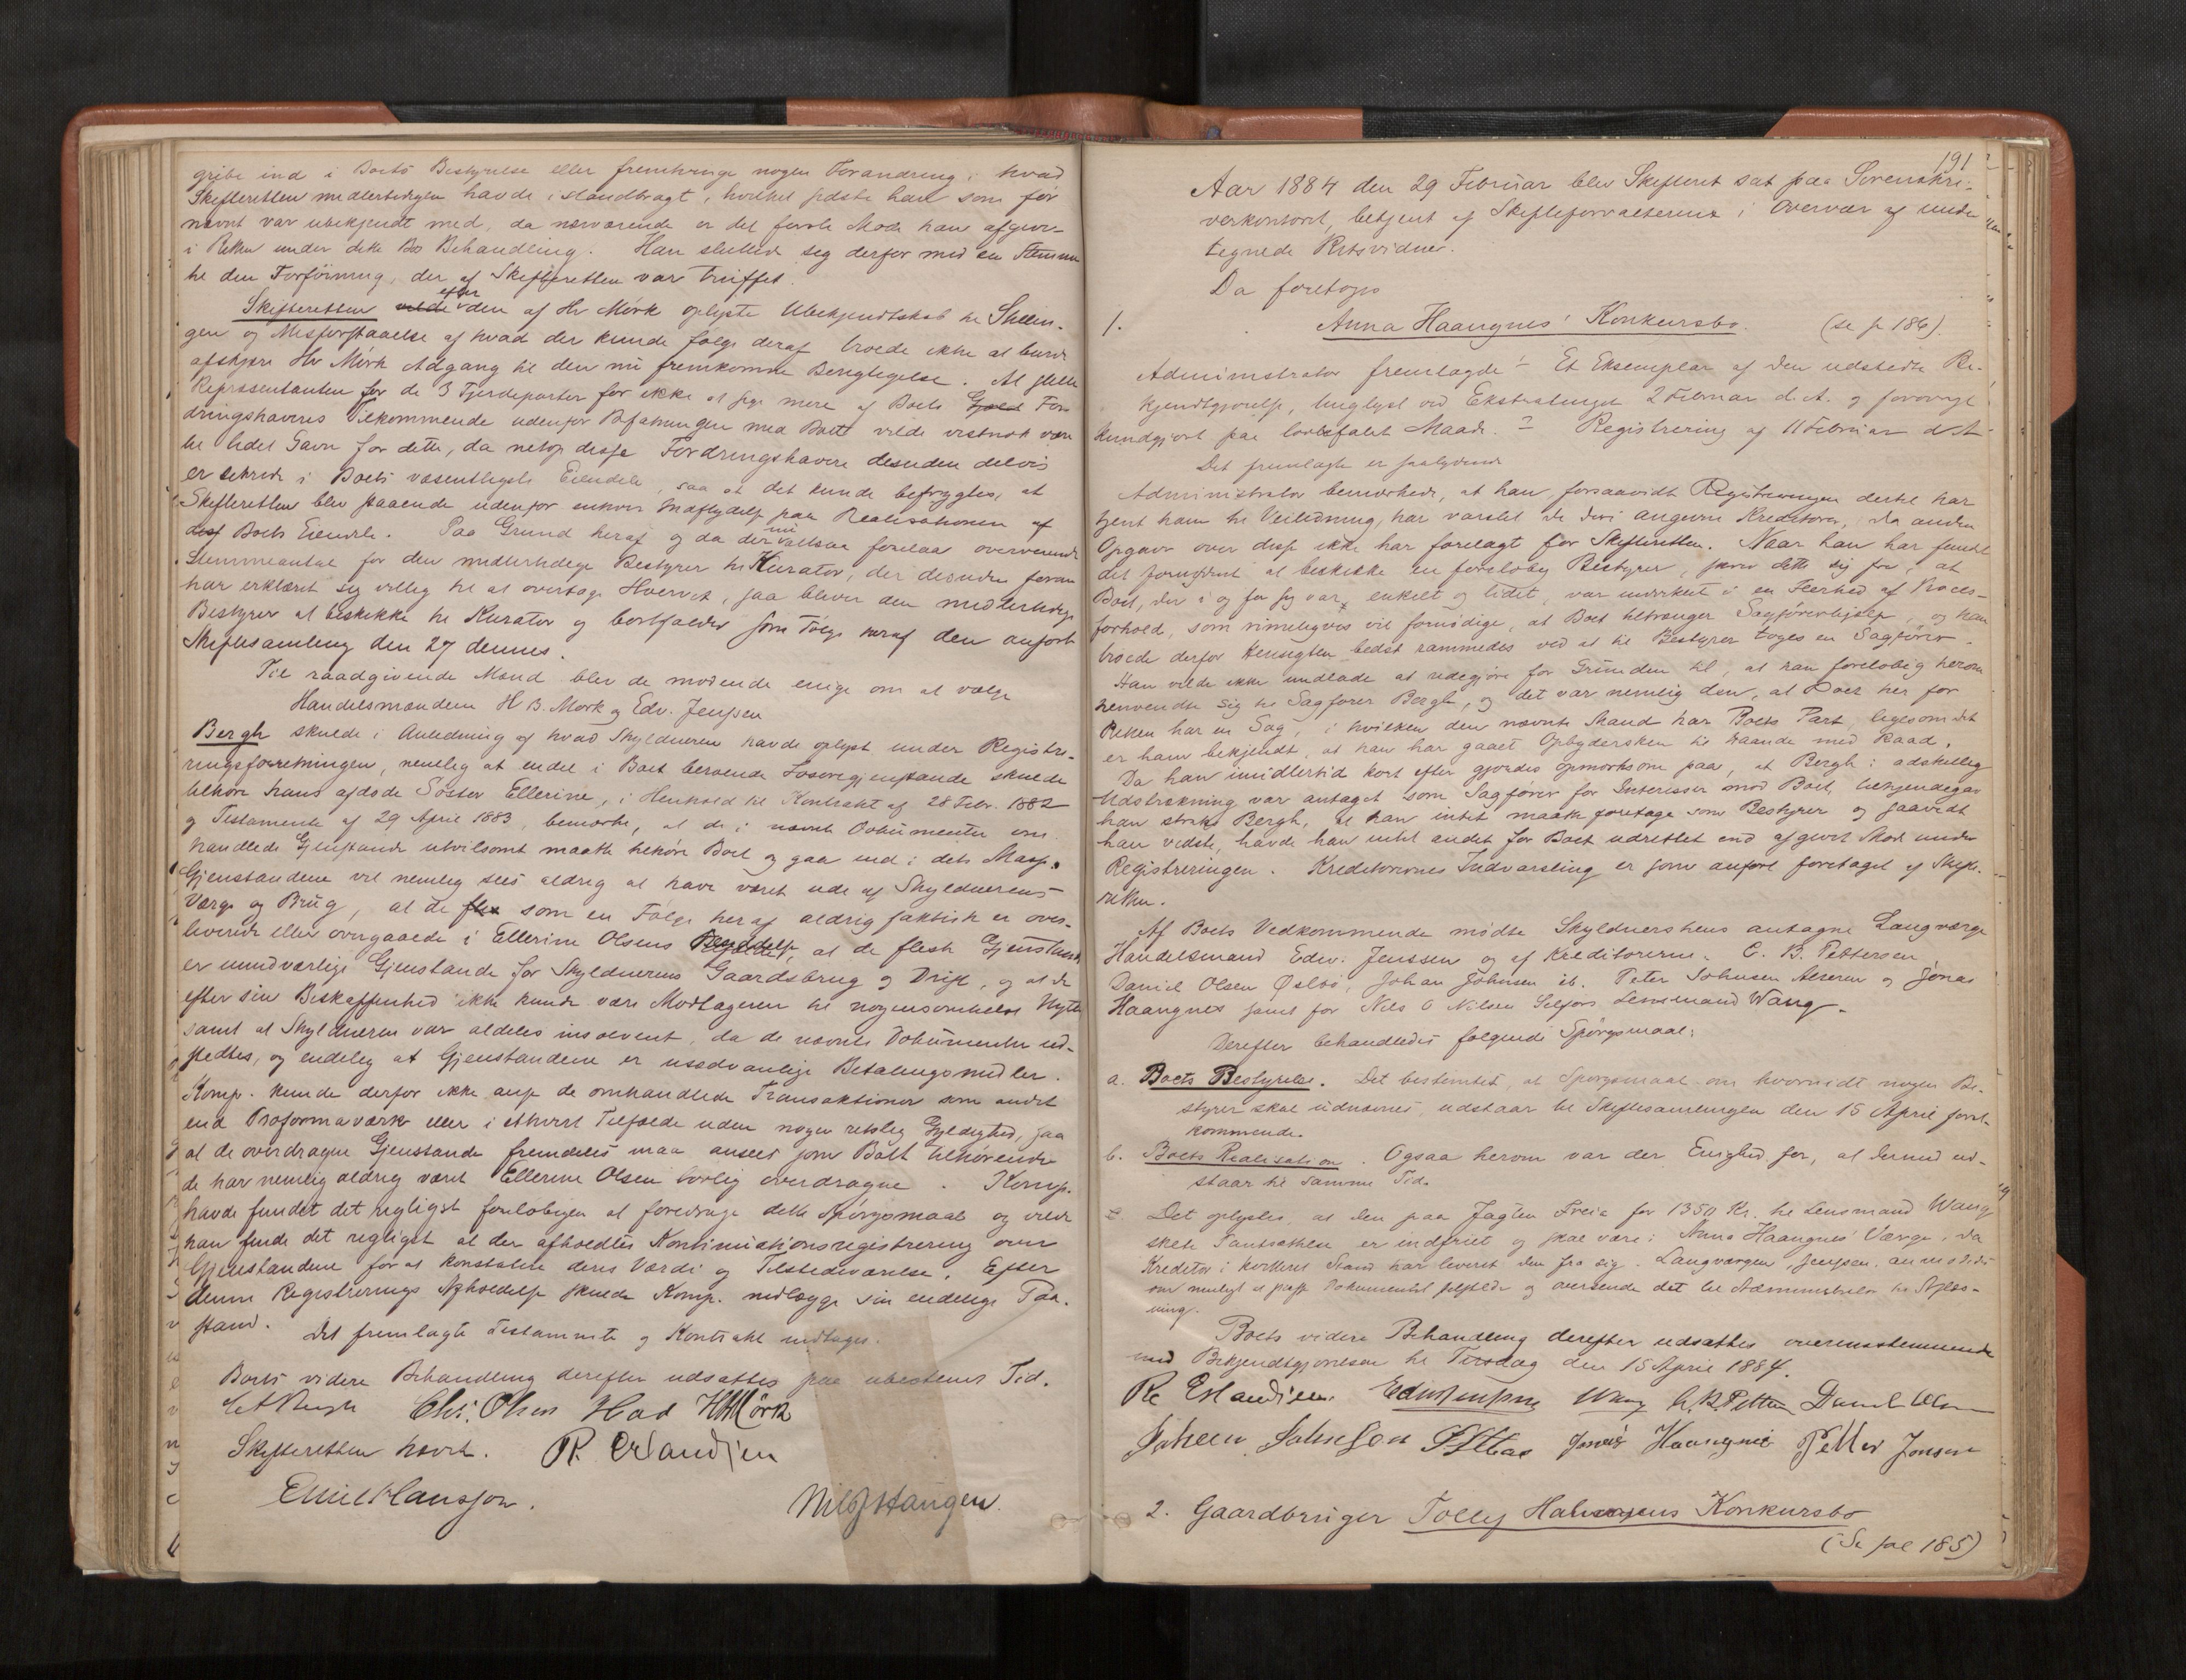 gribe ind i Boets Bestyrelse eller frembringe nogen Forandring i hvad
Skifteretten midlertidigen havde istandbragt, hvilket sidste han som før
nævnt var ubekjendt med, da nærværende er det første Møde han afgiver
i Retten under dette Bos Behandling. Han sluttede sig derfor med en Stemme
til den Forføining, der af Skifteretten var truffet.
Skifteretten efter den af Hr Mörk oplyste Ubekjendtskab til Stillin-
gen og Misforstaaelse af hvad der kunde følge deraf troede ikke at burde
afskjære Hr Mörk Adgang til den nu fremkomne Benægtelse. At stille
Repræsentanten for de 3 Fjerdeparter for ikke at sige mere af Boets For-
dringshaveres Vedkommende udenfor Befatningen med Boet vilde vistnok være
til lidet Gavn for dette, da netop disse Fordringshavere desuden delvis
er sikrede i Boets væsentligste Eiendele, saa at det kunde befrygtes, at
Skifteretten blev staaende udenfor enhver Indflydelse paa Realisationen af
Boets Eiendele. Paa Grund heraf og da der nu altsaa forelaa overveiende
Stemmeantal for den midlertidige Bestyrer til Kurator, der desuden foran
har erklæret sig villig til at overtage Hvervet, saa bliver den midlertidige
Bestyrer at beskikke til Kurator og bortfalder som Følge heraf den anførte
Skiftesamling den 27 dennes.
Til raadgivende Mænd blev de mødende enige om at vælge
Handelsmændene H B. Mørk og Edv. Jenssen
Bergh skulde i Anledning af hvad Skyldneren havde oplyst under Registre-
ringsforretningen, nemlig at endel i Boet beroende Løsøregjenstande skulde
tilhøre hans afdøde Søster Ellerine, i Henhold til Kontrakt af 28 Febr. 1882
og Testamente af 29 April 1883, bemærke, at de i nævnte Dokumenter om-
handlede Gjenstande utvilsomt maatte tilhøre Boet og gaa ind i dets Masse.
Gjenstandene vil nemlig sees aldrig at have været ude af Skyldnerens
Værge og Brug, at de som en Følge heraf aldrig faktisk er over-
leverede eller overgaaede i Ellerine Olsens Besiddelse, at de fleste Gjenstande
er uundværlige Gjenstande for Skyldnerens Gaardsbrug og Drift, og at de
efter sin Beskaffenhed ikke kunde være Modtageren til nogensomhelst Nytte
samt at Skyldneren var aldeles insolvent, da de nævnte Dokumenter ud-
stedtes, og endelig at Gjenstandene er usedvanlige Betalingsmidler.
Komp. kunde derfor ikke anse de omhandlede Transaktioner som andet
end Proformaværk eller i ethvert Tilfælde uden nogen retslig Gyldighed, saa
at de overdragne Gjenstande fremdeles maa ansees som Boet tilhørende
de har nemlig aldrig været Ellerine Olsen lovlig overdragne. Komp.
havde fundet det rigtigst foreløbigen at foredrage dette Spørgsmaal og vilde
han finde det rigtigst at der afholdtes Kontinuationsregistrering over
Gjenstandene for at konstatere deres Værdi og Tilstedeværelse. Efter
denne Registrerings Afholdelse skulde Komp. nedlægge sin endelige Paa-
stand.
Det fremlagte Testamente og Kontrakt indtages.
Boets videre Behandling derefter udsattes paa ubestemt Tid.
Bergh Chr. Olsen Had HMörk
Skifteretten hævet. R. Erlandsen
Emil Hansson.
Nils Haugen.
191
Aar 1884 den 29 Februar blev Skifteret sat paa Sorenskri-
verkontoret, betjent af Skifteforvalteren i Overvær af under
tegnede Retsvidner.
Da foretoges
1. Anna Haangnes' Konkursbo. (se p 186).
Administrator fremlagde 1 Et Eksemplar af den udstedte Be-
kjendtgjørelse, tinglyst ved Ekstratinget 2 Februar d. A. og forøvrigt
kundgjort paa lovbefalet Maade. 2 Registrering af 11 Februar d A
Det fremlagte er saalydende
Administrator bemærkede, at han, forsaavidt Registreringen dertil har
tjent ham til Veiledning, har varslet de deri angivne Kreditorer, da anden
Opgave over disse ikke har forelagt for Skifteretten. Naar han har fundet
det fornødent at beskikke en foreløbig Bestyrer, skrev dette sig fra, at
Boet, der i og for sig var enkelt og lidet, var indviklet i en Fleerhed af Proces-
forhold, som rimeligvis vil fornødige, at Boet tiltrænger Sagførerhjælp, og han
troede derfor Hensigten bedst rammedes ved at til Bestyrer toges en Sagfører.
Han vilde ikke undlade at redegjøre for Grunden til, at han foreløbig herom
henvendte sig til Sagfører Bergh, og det var nemlig den, at Boet her for
Retten har en Sag, i hvilken den nævnte Mand har Boets Part, ligesom det
er ham bekjendt, at han har gaaet Opbydersken til Haande med Raad.
Da han imidlertid kort efter gjordes opmærksom paa, at Bergh i adskillig
Udstrækning var antaget som Sagfører for Interesser mod Boet, tilkjendegav
han straks Bergh, at han intet maatte foretage som Bestyrer og saavidt
han vidste, havde han intet andet for Boet udrettet end afgivet Møde under
Registreringen. Kreditorernes Indvarsling er som anført foretaget af Skifte-
retten.
Af Boets Vedkommende mødte Skyldnerskens antagne Laugværge
Handelsmand Edw. Jenssen og af Kreditorerne. C. B. Pettersen,
Daniel Olsen Øslbø, Johan Johnsen ib. Peter Johnsen Alseren og Jonas
Haangnes samt for Nils O Nilsen Selfors Lensmand Wang.
Derefter behandledes følgende Spørgsmaal:
a. Boets Bestyrelse. Det bestemtes, at Spørgsmaal om hvorvidt nogen Be-
styrer skal udnævnes, udstaar til Skiftesamlingen den 15 April først-
kommende.
b. Boets Realisation. Ogsaa herom var der Enighed for, at dermed ud-
staar til samme Tid.
c Det oplystes, at den paa Jagten Freia for 1350 Kr. til Lensmand Wang
skete Pantsættelse er indfriet og skal være i Anna Haangnes' Værge, da
Kreditor i kvitteret Stand har leveret den fra sig. Laugværgen, Jenssen, anmodedes
om muligt at skaffe Dokumentet tilstede og oversende det til Administrator til Aflæs-
ning.
Boets videre Behandling derefter udsattes overensstemmende
med Bekjendtgjørelsen til Tirsdag den 15 April 1884.
R. Erlandsen Edw Jenssen Wang C. B. Pettersen Daniel Olsen
Joheen Johnson Jonas Haangnes Petter Jonsen
2. Gaardbruger Tolley Konkursbo
(Se pal 185)